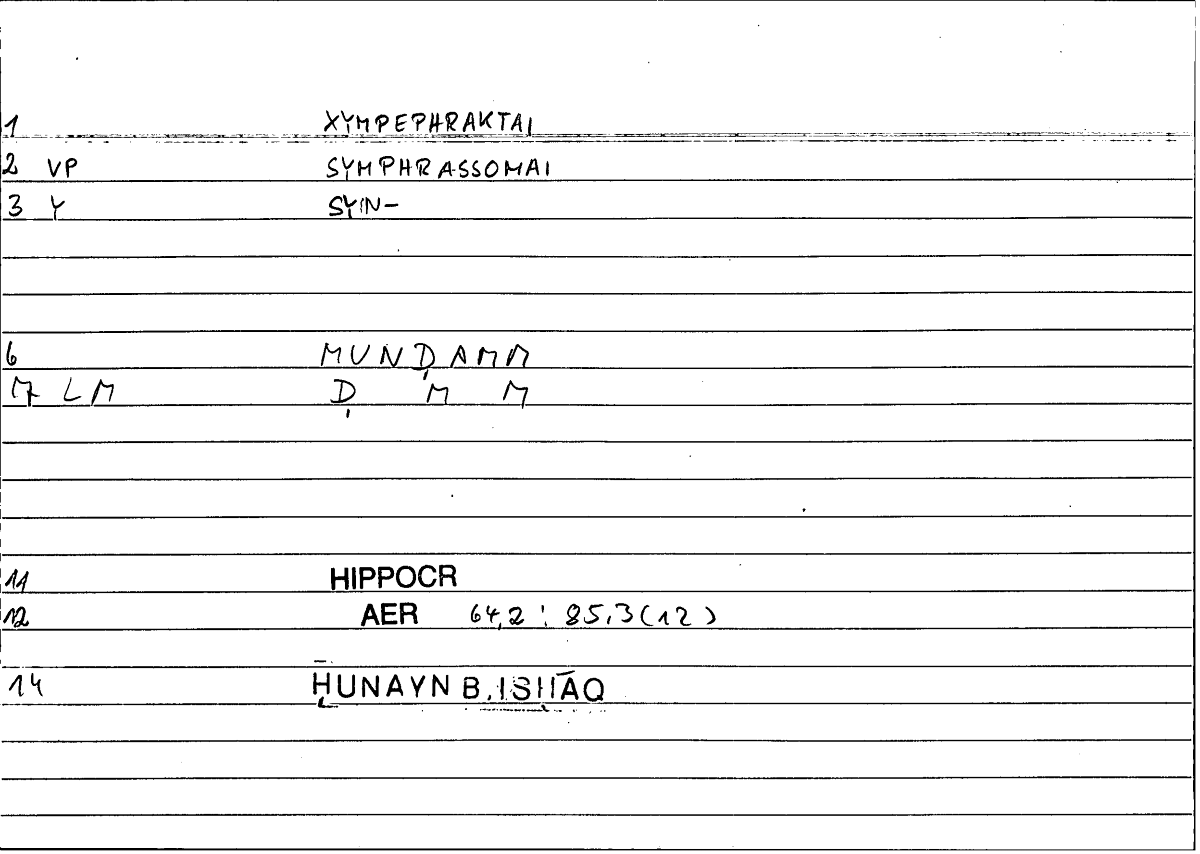 1 XYMPEPHRAKTAI
2 VP SYMPHRASSOMAI
3 Y SYN-
6 MUNḌAMM
7 LM Ḍ M M
11 HIPPOCR
12 AER 64,2 : 85,3(12)
14 ḤUNAYN B. ISḤĀQ